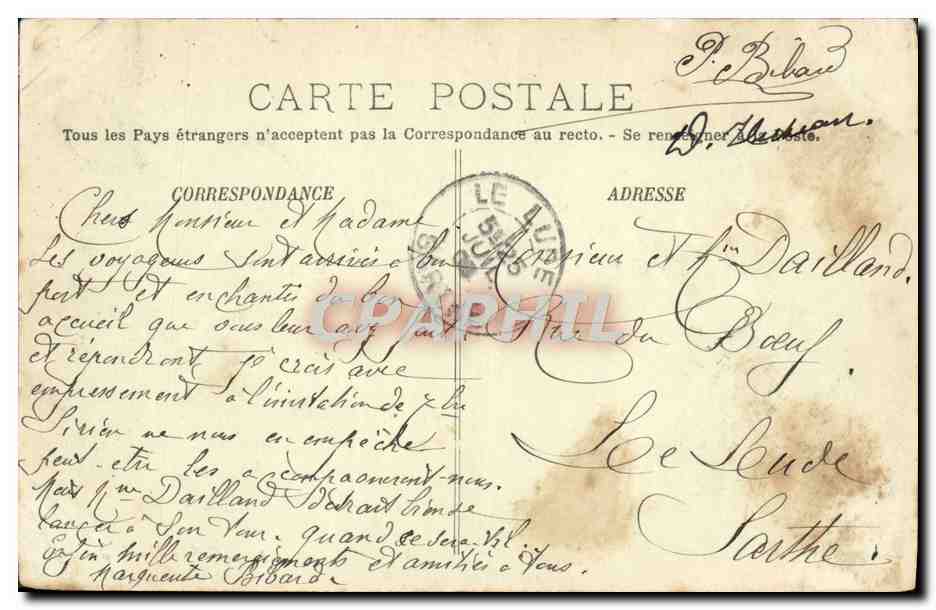 P. Bibard
CARTE POSTALE
Tous les Pays étrangers n'acceptent pas la Correspondance au recto. - Se renseigner à la Poste.
D.
CORRESPONDANCE
Chers Monsieur et Madame
Les voyageurs sont arrivés à bon
port et enchantés du bon
accueil que vous leur avez fait
et répondront je crois avec
empressement à l'invitation de
si rien ne nous en empêche
peut-être les accompagneront-nous.
Mais Mme Dailland devrait bien se
lancer à son tour. quand ce sera-t-il
Enfin mille remerciements et amitiés à tous.
Marguerite Bibard
LE LUDE
JUIL
SARTHE
CPAPHIL
ADRESSE
Monsieur et Mme Dailland.
Rue du Bœuf.
Le Lude
Sarthe.